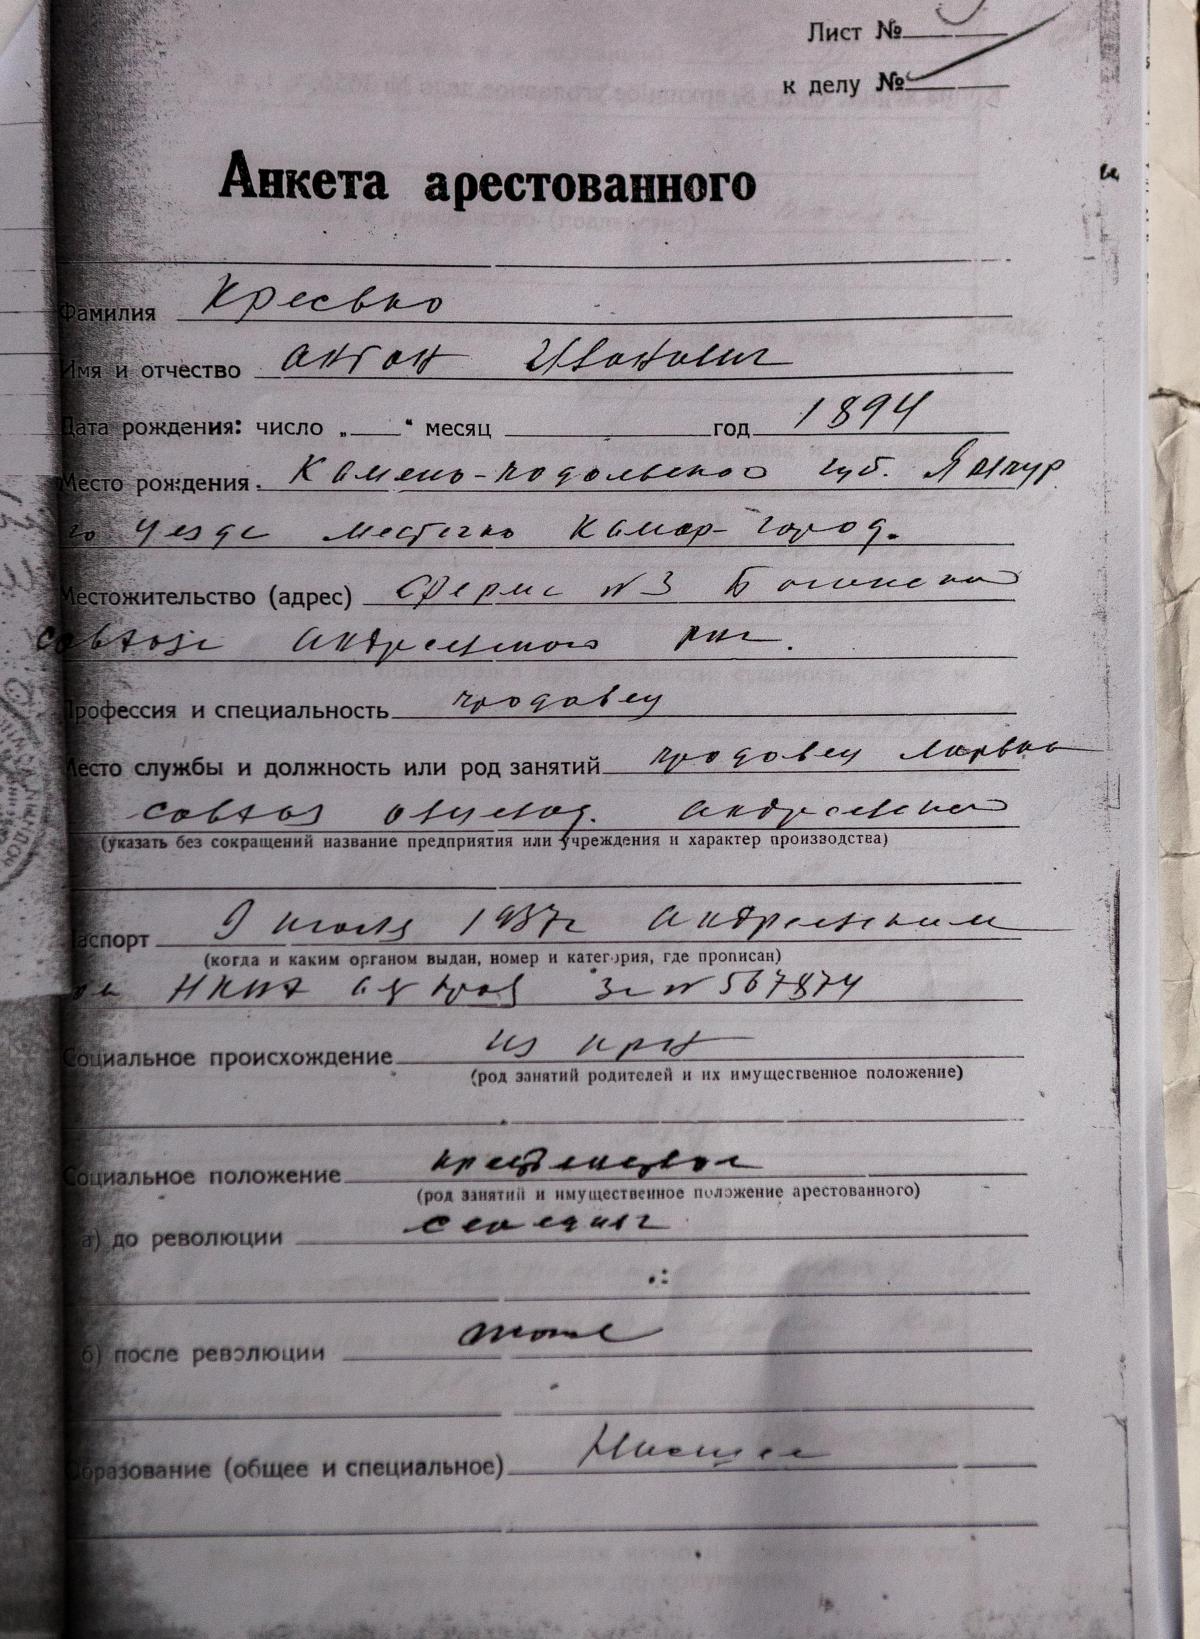 Лист №
к делу №
Анкета арестованного
Фамилия Кресько
Имя и отчество Антон Иванович
Дата рождения: число „ “ месяц год 1894
Место рождения. Камень-подольского губ. Ямпур
го уезде местечко Камар-город.
Местожительство (адрес) Ферме №3
совхозе Андреевского
Профессия и специальность продавец
Место службы и должность или род занятий продавец ларька
совхоз Андреевского
(указать без сокращений название предприятия или учреждения и характер производства)
Паспорт 9 июля 1937г Андреевским
(когда и каким органом выдан, номер и категория, где прописан)
НКВД За № 567874
Социальное происхождение из крест
(род занятий родителей и их имущественное положение)
Социальное положение
(род занятий и имущественное положение арестованного)
а) до революции середняк
б) после революции тоже
Образование (общее и специальное) Низшее